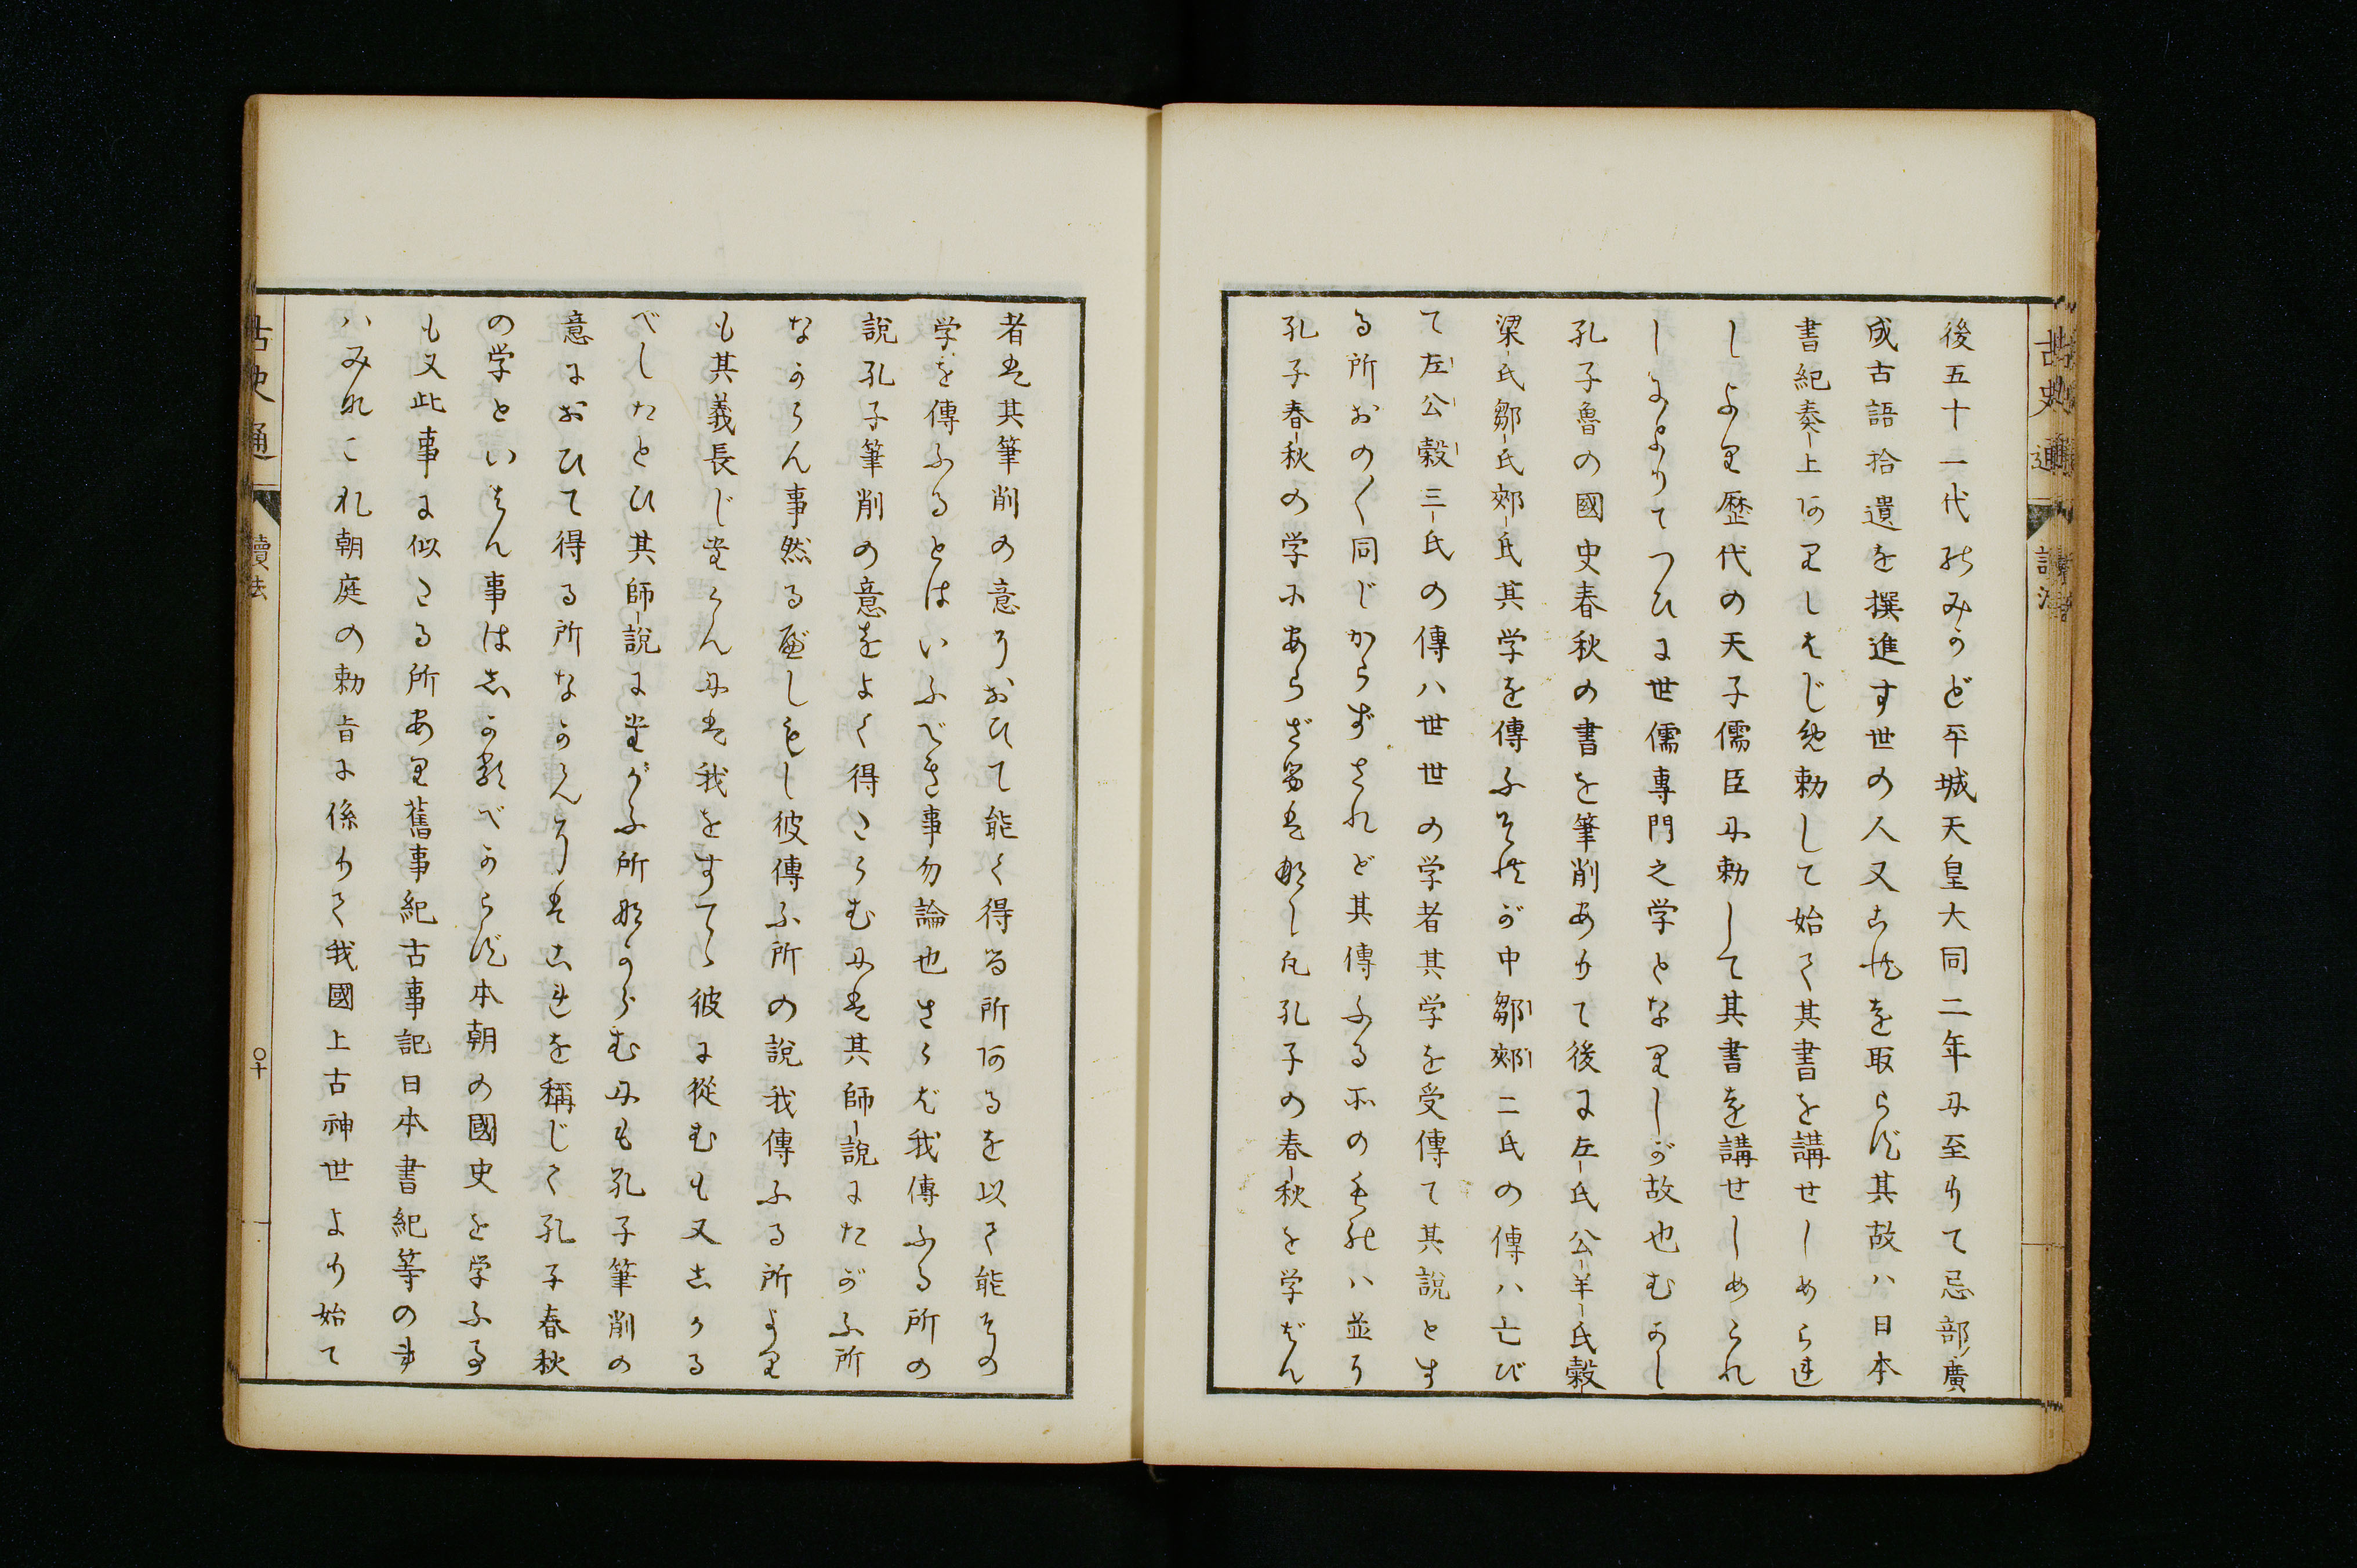 後五十一代のみかど平城天皇大同二年に至りて忌部ノ廣
成古語拾遺を撰進す世の人又これを取らず其故ハ日本
書紀奏上ありしはじめ勅して始て其書を講せしめられ
しより歴代の天子儒臣に勅して其書を講せしめられ
しによりてつひに世儒專門之学となりしが故也むかし
孔子魯の國史春秋の書を筆削ありて後に左氏公羊氏穀
梁氏鄒氏郟氏其学を傳ふそれが中鄒郟二氏の傳ハ亡び
て左公穀三氏の傳ハ世世の学者其学を受傳て其説とす
る所おの〱同じからずされど其傳ふる所のものハ並に
孔子春秋の学にあらざるはなし凡孔子の春秋を学ばん
者は其筆削の意におひて能く得る所あるを以て能その
学を傳ふるとはいふべき事勿論也さらば我傳ふる所の
説孔子筆削の意をよく得たらむには其師説にたがふ所
なからん事然るべしもし彼傳ふ所の説我傳ふる所より
も其義長じたらんには我をすてゝ彼に從むも又しかる
べしたとひ其師説にたがふ所なからむにも孔子筆削の
意におひて得る所なからんにはこれを稱じて孔子春秋
の学といはん事はしかるべからず本朝の國史を学ふ事
も又此事に似たる所あり舊事紀古事記日本書紀等の書
ハみなこれ朝庭の勅旨に係りて我國上古神世より始て
古史通
讀法
〇十